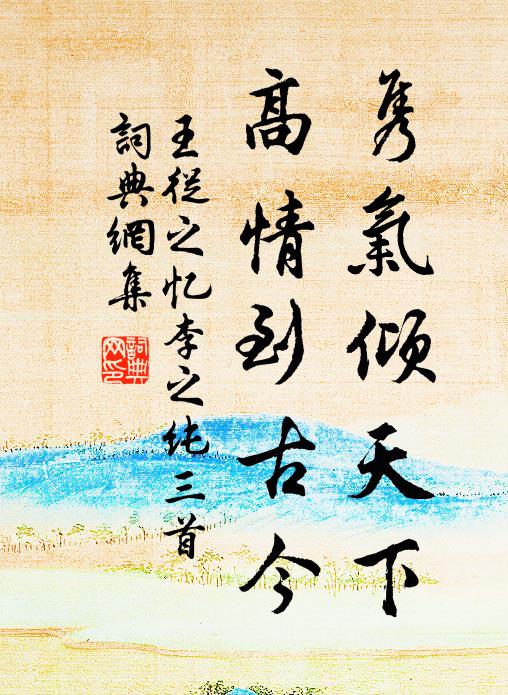 隽氣傾天下
高情到古今
王從之忆李之纯三首
詞典網集
詞典網印